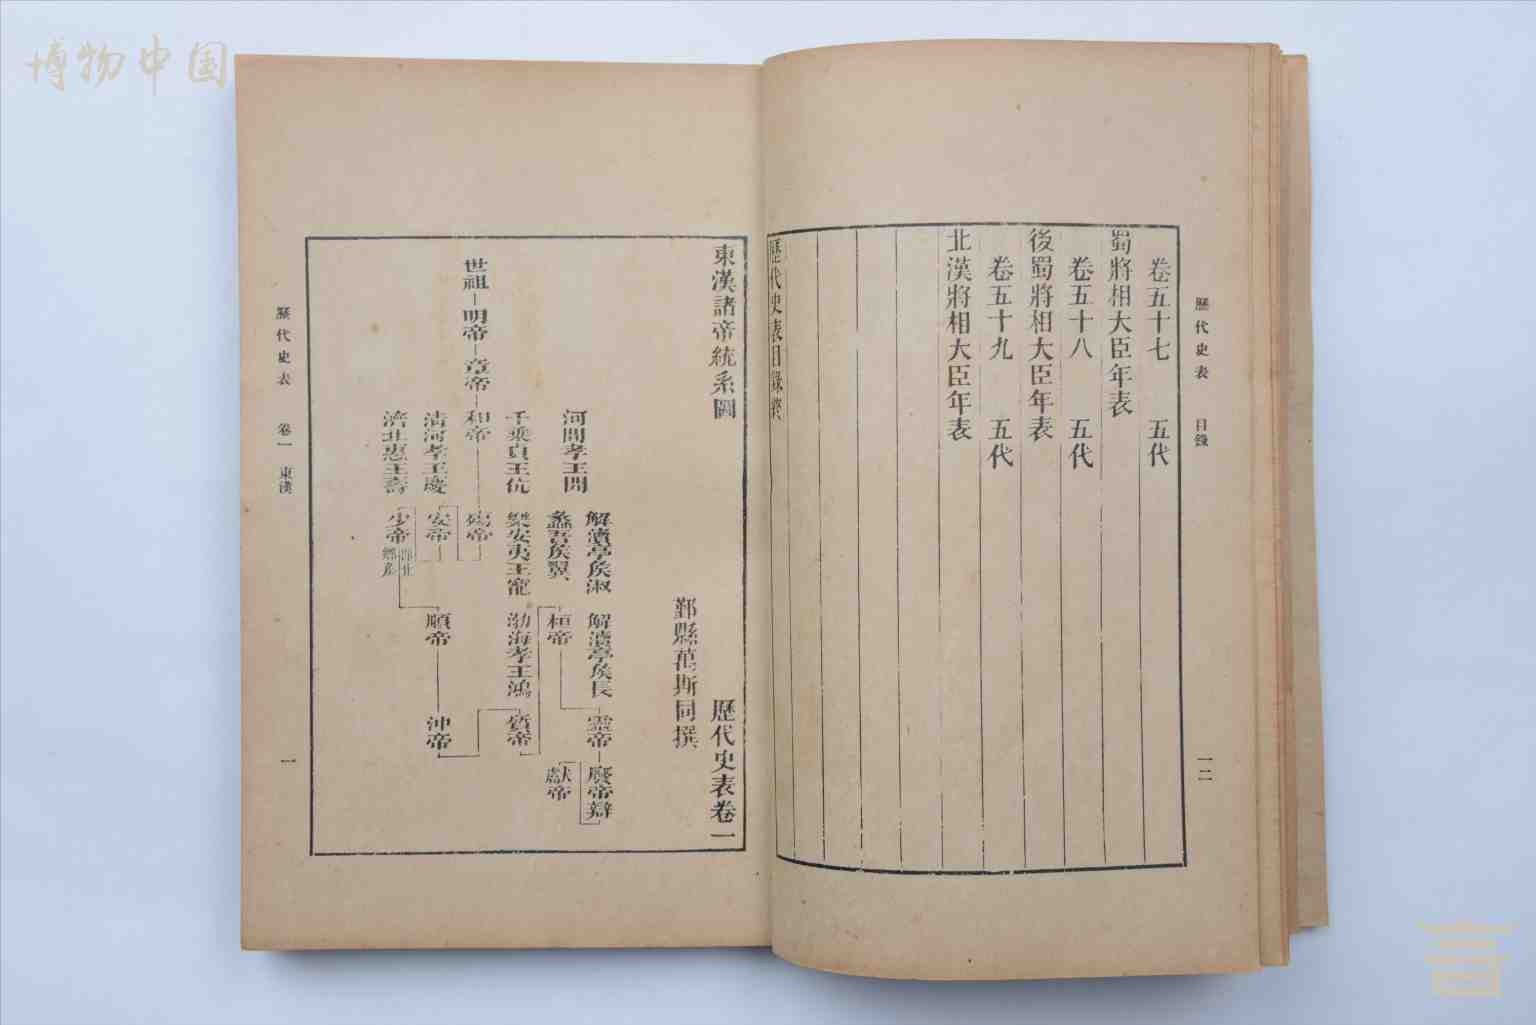 博物中国
歷代史表 目錄 一二
卷五十七 五代
蜀將相大臣年表
卷五十八 五代
後蜀將相大臣年表
卷五十九 五代
北漢將相大臣年表
歷代史表目錄終
東漢諸帝統系圖 歷代史表卷一
鄞縣萬斯同撰
解瀆亭侯淑 解瀆亭侯萇 靈帝 廢帝辯
河間孝王開 蠡吾侯翼 桓帝 獻帝
千乘貞王伉 樂安夷王寵 渤海孝王鴻 質帝
世祖 明帝 章帝 和帝 殤帝
清河孝王慶 安帝 順帝 沖帝
濟北惠王壽 少帝 即北鄉侯
歷代史表 卷一 東漢 一
言